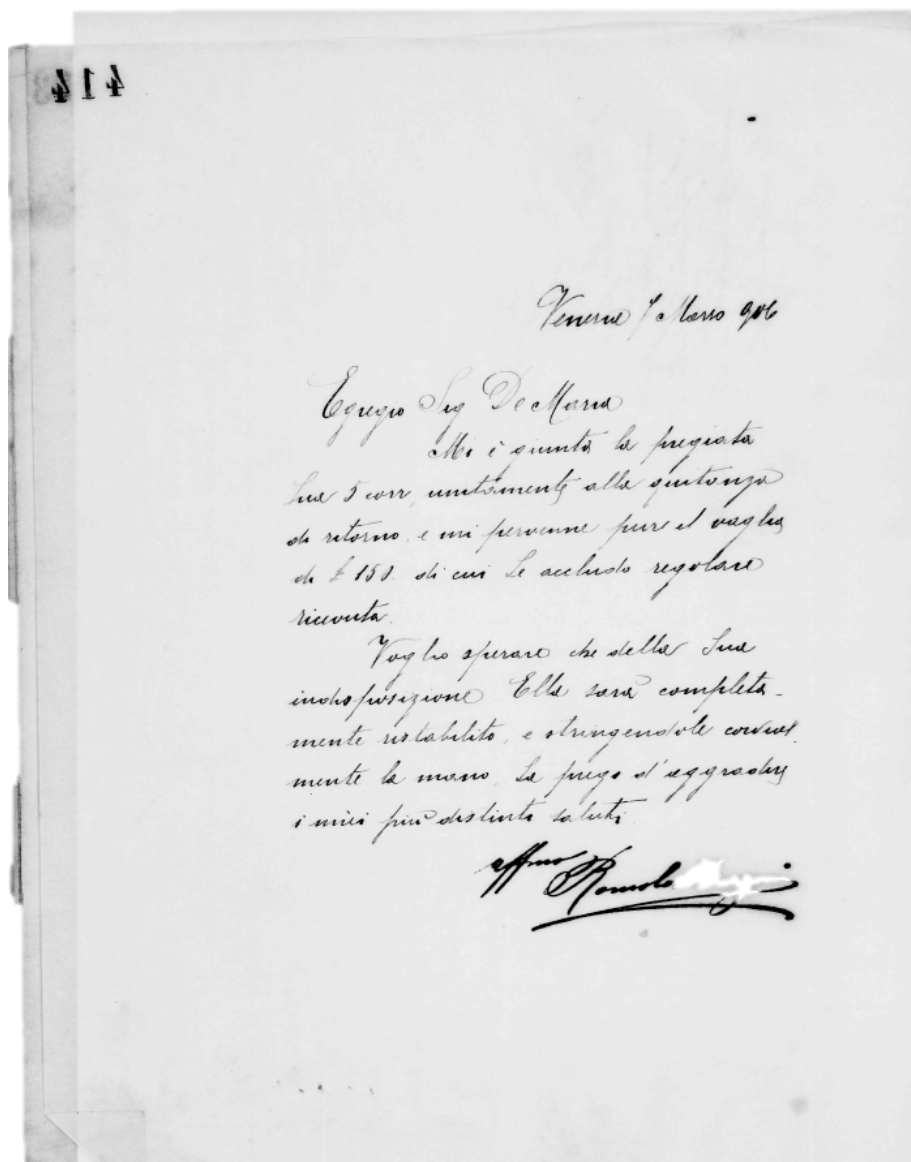 414
Venezia 7 Marzo 906
Egregio Sig De Maria
Mi è giunta la pregiata
Sua 5 corr, unitamente alla quitanza
di ritorno e mi pervenne pure il vaglia
di £ 150. di cui Le accludo regolare
ricevuta.
Voglio sperare che della Sua
indisposizione Ella sarà completa-
mente ristabilito, e stringendole cordial-
mente la mano, La prego d'aggradire
i miei più distinti saluti
affmo
Romolo